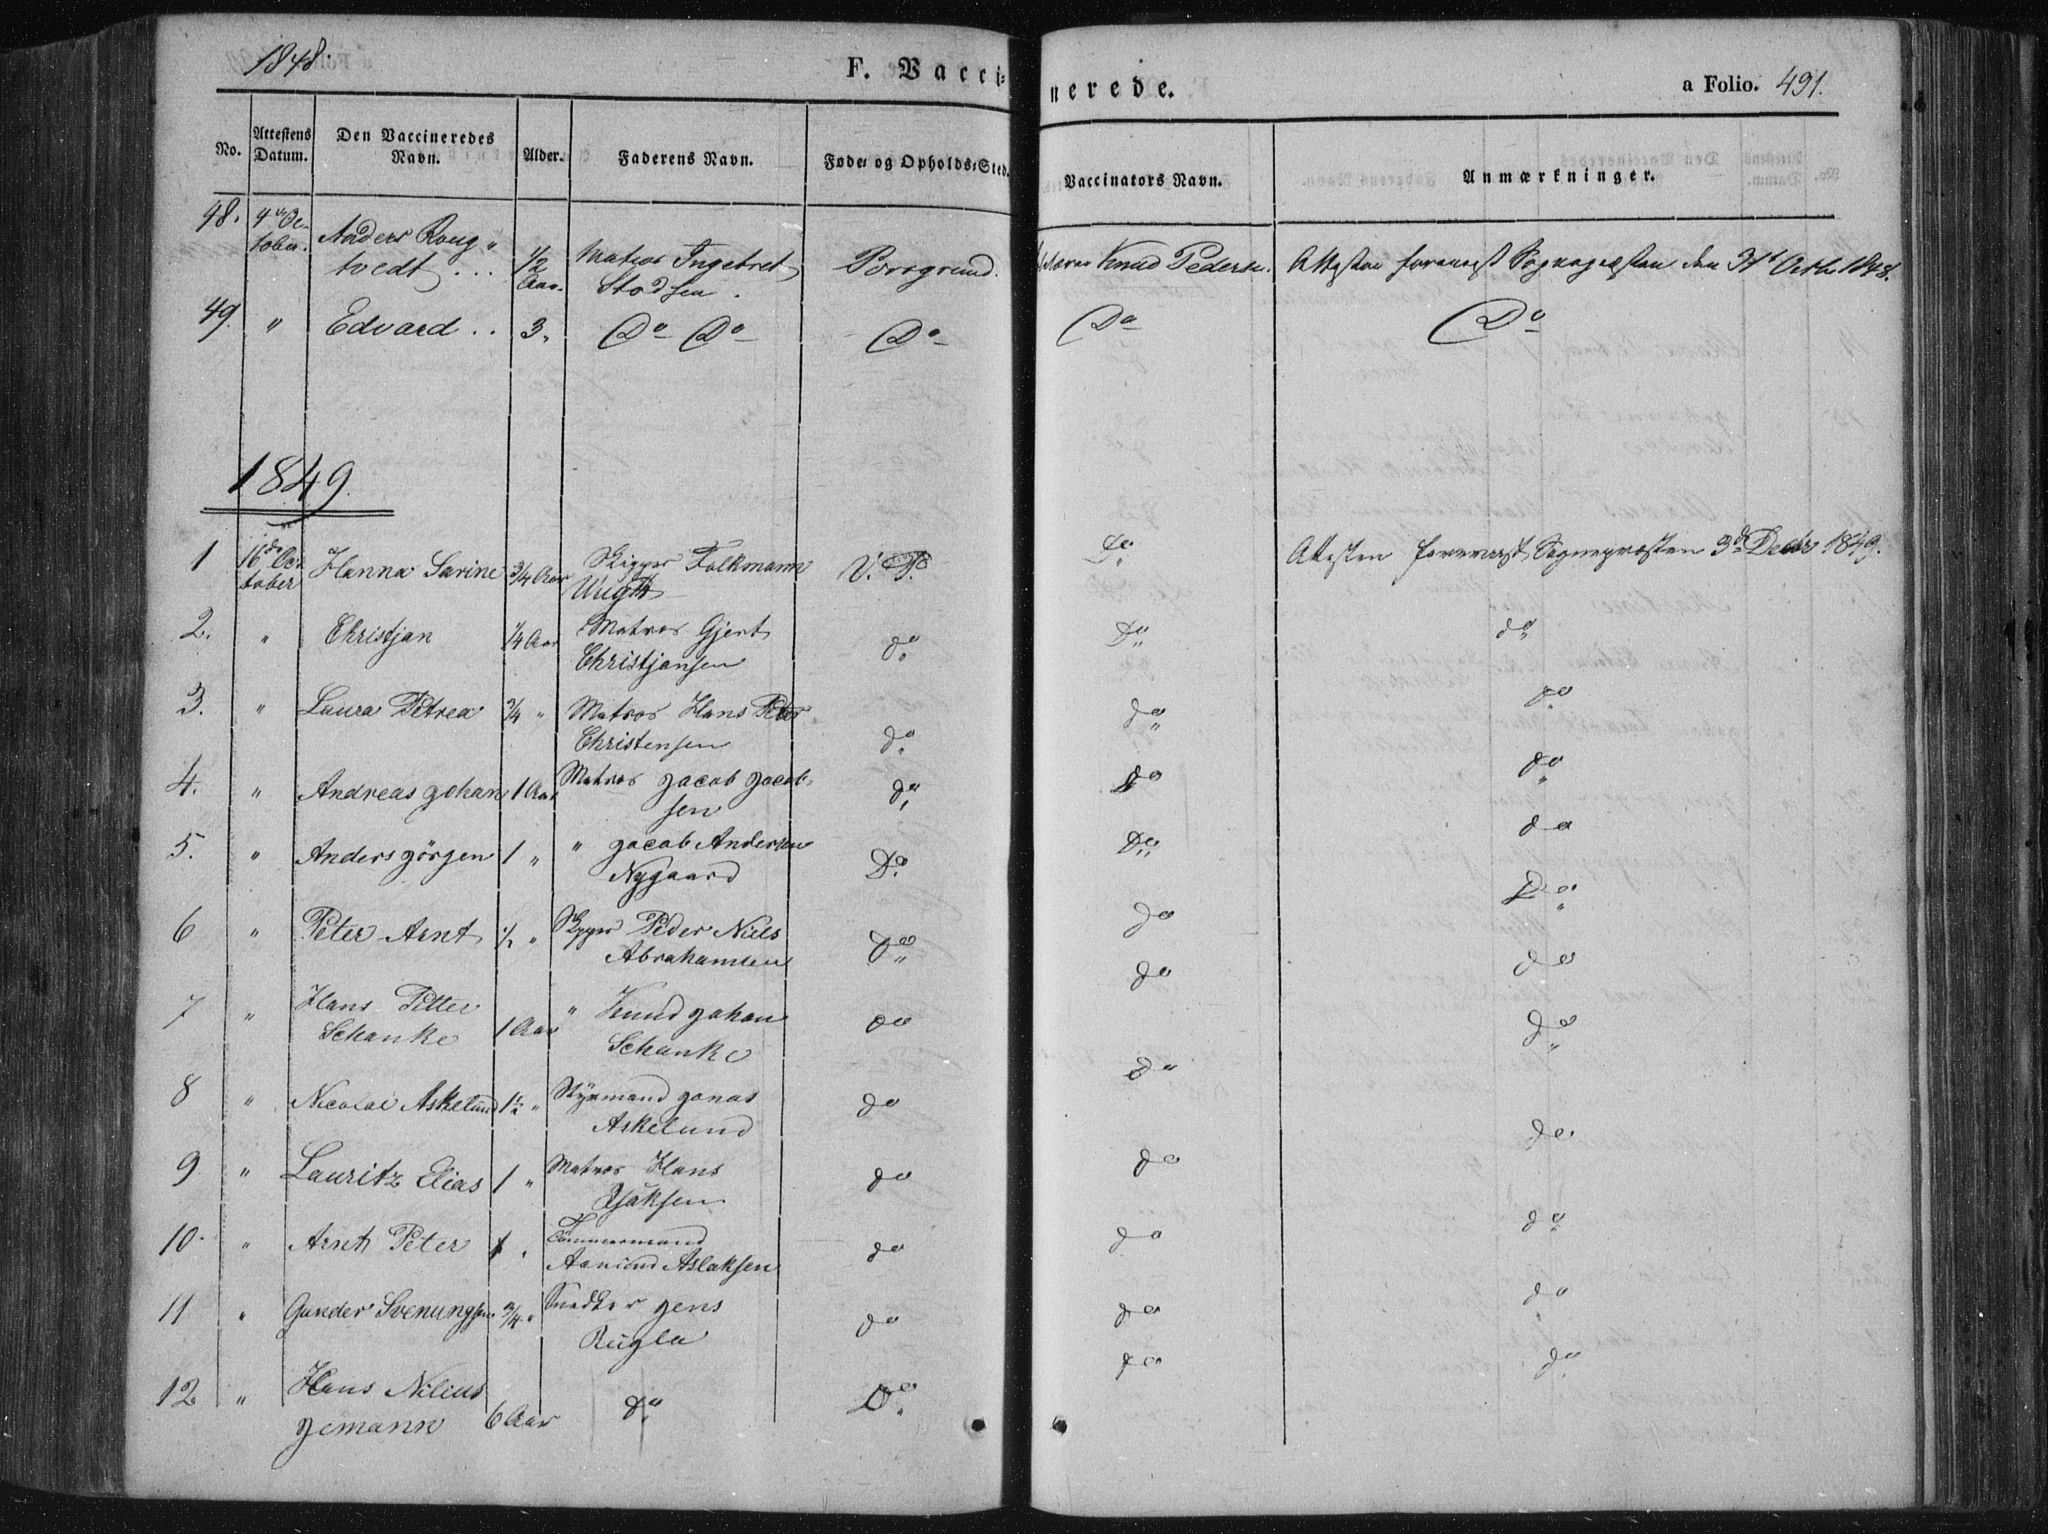 1848.
F. Vacci=
nerede.
a Folio. 491.
No.
Attestens Datum.
Den Vaccineredes Navn.
Alder.
Faderens Navn.
Føde= og Opholds=Sted.
Vaccinators Navn.
Anmærkninger.
48. 4de Oc- Anders Roug- 1/2 Matros Ingebret Porsgrund. Knud Pedersen. Attesten foreviist Sognepræsten den 1848.
tober. tvedt . . . Aar.
49. " Edvard . . 3. Do Do Do Do Do
1849.
1 16de Oc- Hanna Sarine 3/4 Aar Skipper Folkmann V. P. Do Attesten foreviist Sognepræsten 3d Decbr 1849.
tober
2. " Christjan 1/4 Aar Matros Gjert do Do do
Christjansen
3. " Laura Petrea 3/4 " Matros Hans Peter do do do
Christensen
4. " Andreas Johan 1 Aar Matros Jacob Jacob- do do do
sen
5. " Anders Jörgen 1 " " Jacob Andersen Do. Do do
Nygaard
6 " Peter Arnt 1/2 " Skipper Peder Niels Do do Do
Abrahamsen
7 " Hans Petter 1 Aar " Knud Johan do do do
Schanke Schanke
8 " Nicolai Askelund 1 1/2 " Styrmand Jonas do do do
Askelund
9 " Lauritz Elias 1 " Matros Hans do do do
Isaksen
10. " Arnt Peter 1 " Tømmermand do do do
Aamund Aslaksen
11 " Gunder Svenungsen 3/4 " Snedker Jens do do do
Rugla
12 " Hans Nilius 6 Aar do Do do do
Jemann